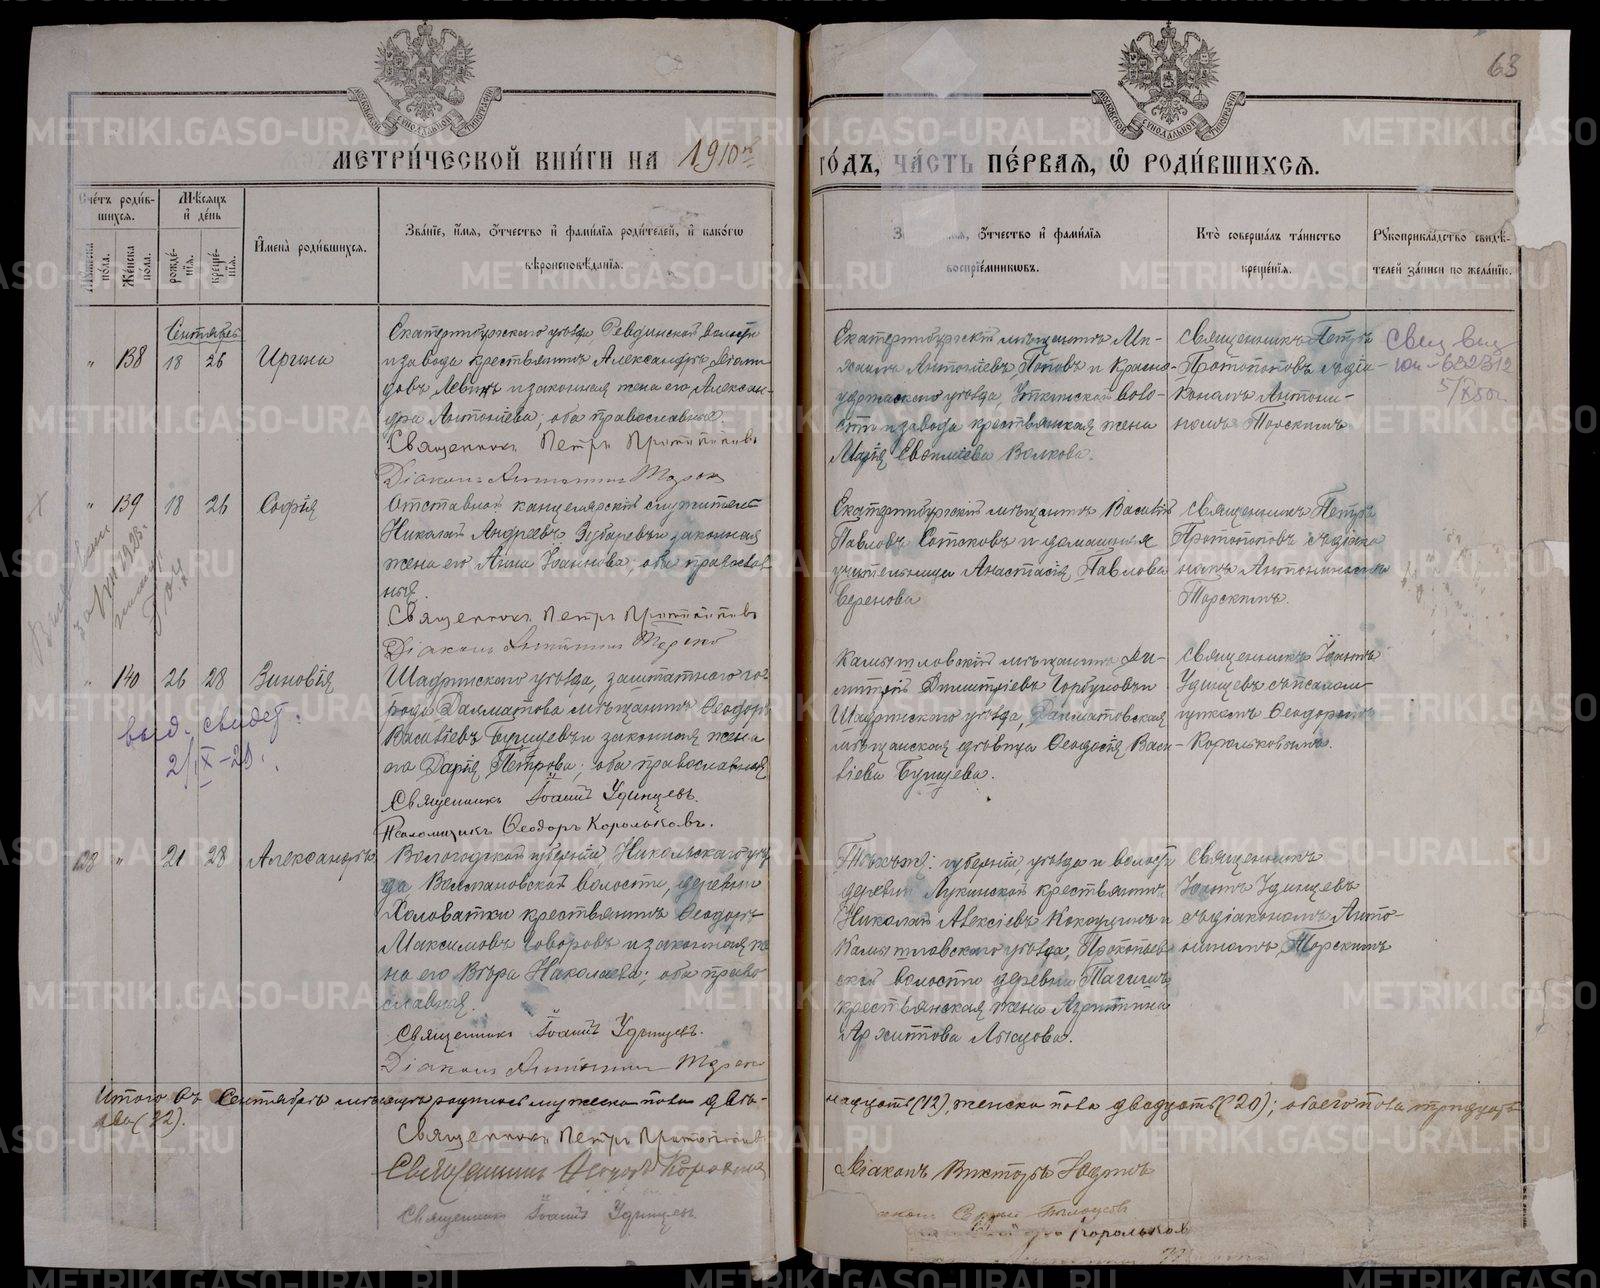 63
МЕТРИ́ЧЕСКОЙ КНИ́ГИ НА 1910й ГО́ДЪ, ЧА́СТЬ ПЕ́РВАѦ, Ѿ РОДИ́ВШИХСѦ.
Сче́тъ роди́в-
шихсѧ.
Мѣ́сѧцъ
и҆ де́нь
И҆мена̀ роди́вшихсѧ.
Зва́нїе, и҆́мѧ, ѻ҆́тчество и҆ фами́лїѧ роди́телей, и҆ како́гѡ
вѣроисповѣ́данїѧ.
ѻ҆́тчество и҆ фами́лїѧ
воспрїе́мникѡвъ.
Кто̀ соверша́лъ та́инство
креще́нїѧ.
Рꙋкоприкла́дство свидѣ́-
телей за́писи по жела́нїю.
Же́нска
по́ла.
рожде́-
нїѧ.
креще́-
нїѧ.
Сентябрь
" 138 18 26 Ирина
Екатеринбургскаго уѣзда, Ревдинской волости
и завода крестьянинъ Александръ
довъ Левинъ и законная жена его Алексан-
дра Антонiева; оба православные.
Священникъ Петръ Протопоповъ
Дiаконъ Антонинъ Торскiй
Екатеринбургскiй мѣщанинъ Ми-
хаилъ Антонiевъ Поповъ и Красно-
уфимскаго уѣзда, Уткинской воло-
сти и завода крестьянская жена
Марiя Евѳимiева Волкова.
Священникъ Петръ
Протопоповъ съ дiа-
кономъ Антони-
номъ Торскимъ
" 139 18 26 Софiя
Отставной канцелярскiй служитель
Николай Андреевъ Зубаревъ и законная
жена его Анна Iоаннова; оба православ-
ные.
Священникъ Петръ Протопоповъ
Дiаконъ Антонинъ Торскiй
Екатеринбургскiй мѣщанинъ Василiй
Павловъ Сотсковъ и домашняя
учительница Анастасiя Павлова
Беренова
Священникъ Петръ
Протопоповъ съ дiако-
номъ Антониномъ
Торскимъ.
" 140 26 28 Зиновiя
выд. свидѣт.
Шадринскаго уѣзда, заштатнаго го-
рода Далматова мѣщанинъ Ѳеодоръ
Василiевъ Бунцевъ и законная жена
его Дарiя Петрова; оба православные
Священникъ Iоаннъ Удинцевъ.
Псаломщикъ Ѳеодоръ Корольковъ.
Камышловскiй мѣщанинъ Ди-
митрiй Димитрiевъ Горбуновъ и
Шадринскаго уѣзда, Далматовская
мѣщанская дѣвица Ѳеодосiя Васи-
лiева Бунцева.
Священникъ Iоаннъ
Удинцевъ съ псалом-
щикомъ Ѳеодоромъ
Корольковымъ.
128 " 21 28 Александръ
Вологодской губернiи, Никольскаго уѣз-
да, волости, деревни
Холоватки крестьянинъ Ѳеодоръ
Максимовъ Говоровъ и законная же-
на его Вѣра Николаева; оба право-
славная.
Священникъ Iоаннъ Удинцевъ.
Дiаконъ Антонинъ Торскiй
Тѣхъ же: губернiи, уѣзда и волости
деревни Лукинской крестьянинъ
Николай Алексiевъ Кокоулинъ и
Камышловскаго уѣзда, Прокопьев-
ской волости деревни
крестьянская жена Агриппина
Архиппова
Священникъ
Iоаннъ Удинцевъ
съ дiакономъ Анто-
ниномъ Торскимъ
Итого въ Сентябрѣ мѣсяцѣ родилось мужеска пола двѣ- надцать (12), женска пола двадцать (20); обоего пола тридцать
два (32).
Священникъ Петръ Протопоповъ
Священникъ Ѳеодоръ
Священникъ Iоаннъ Удинцевъ
Дiаконъ Викторъ
Корольковъ
METRIKI.GASO-URAL.RU